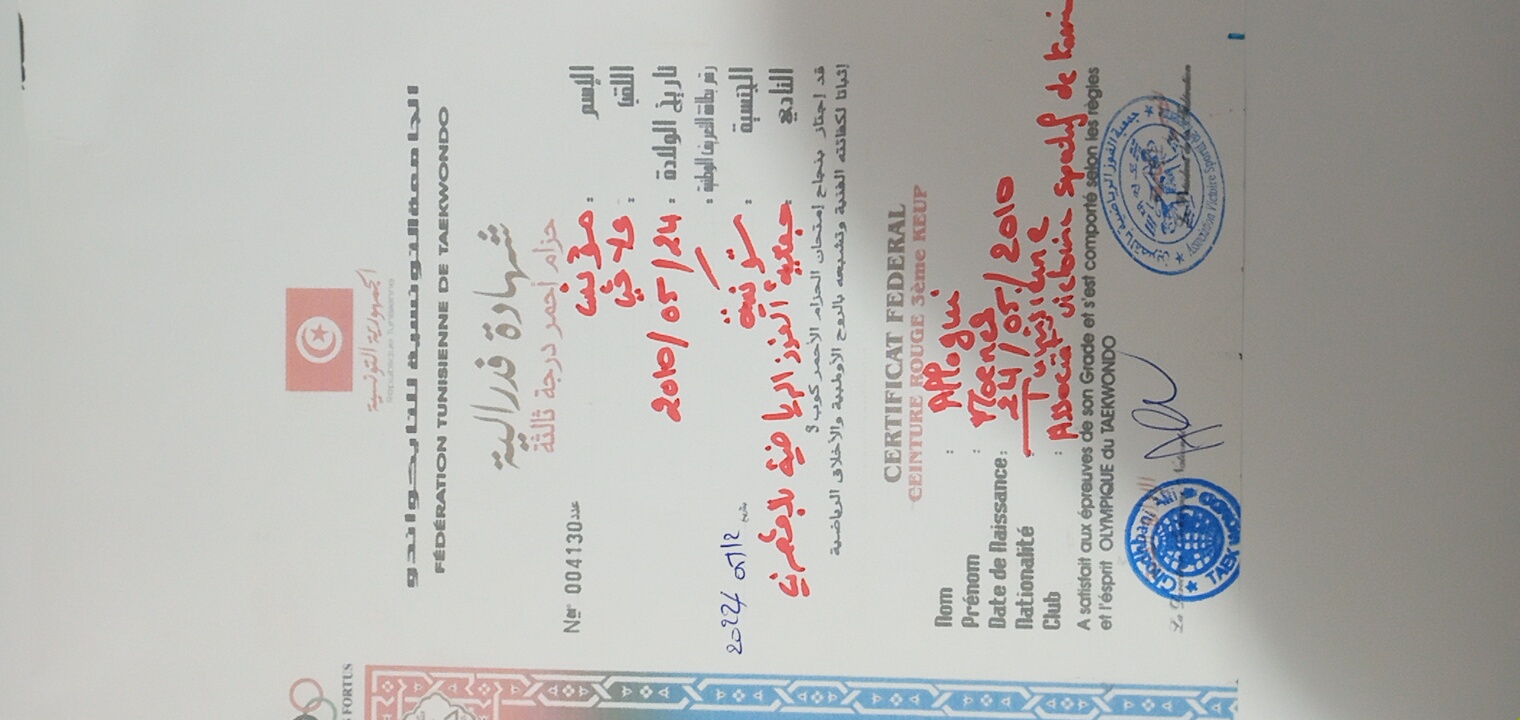 الجمهورية التونسية
République Tunisienne
الجامعة التونسية للتايكواندو
FÉDÉRATION TUNISIENNE DE TAEKWONDO
FORTUS
شهادة فدرالية
حزام أحمر درجة ثالثة
N° 004130 عدد
الإسم :
اللقب :
تاريخ الولادة : 2010/05/24
رقم بطاقة التعريف الوطنية :
الجنسية : تونسية
النادي : جمعية الفوز الرياضية بالقصرين
قد إجتاز بنجاح إمتحان الحزام الأحمر كوب 3
إثباتا لكفائته الفنية وتشبعه بالروح الأولمبية والأخلاق الرياضية
CERTIFICAT FEDERAL
CEINTURE ROUGE 3ème KEUP
Nom :
Prénom :
Date de Naissance : 24/05/2010
Nationalité : Tunisienne
Club : Association victoire sportif de
A satisfait aux épreuves de son Grade et s'est comporté selon les règles
et l'ésprit OLYMPIQUE du TAEKWONDO
Ghodhbani
TAEKWONDO
جمعية الفوز الرياضية بالقصرين
Association Victoire Sport de